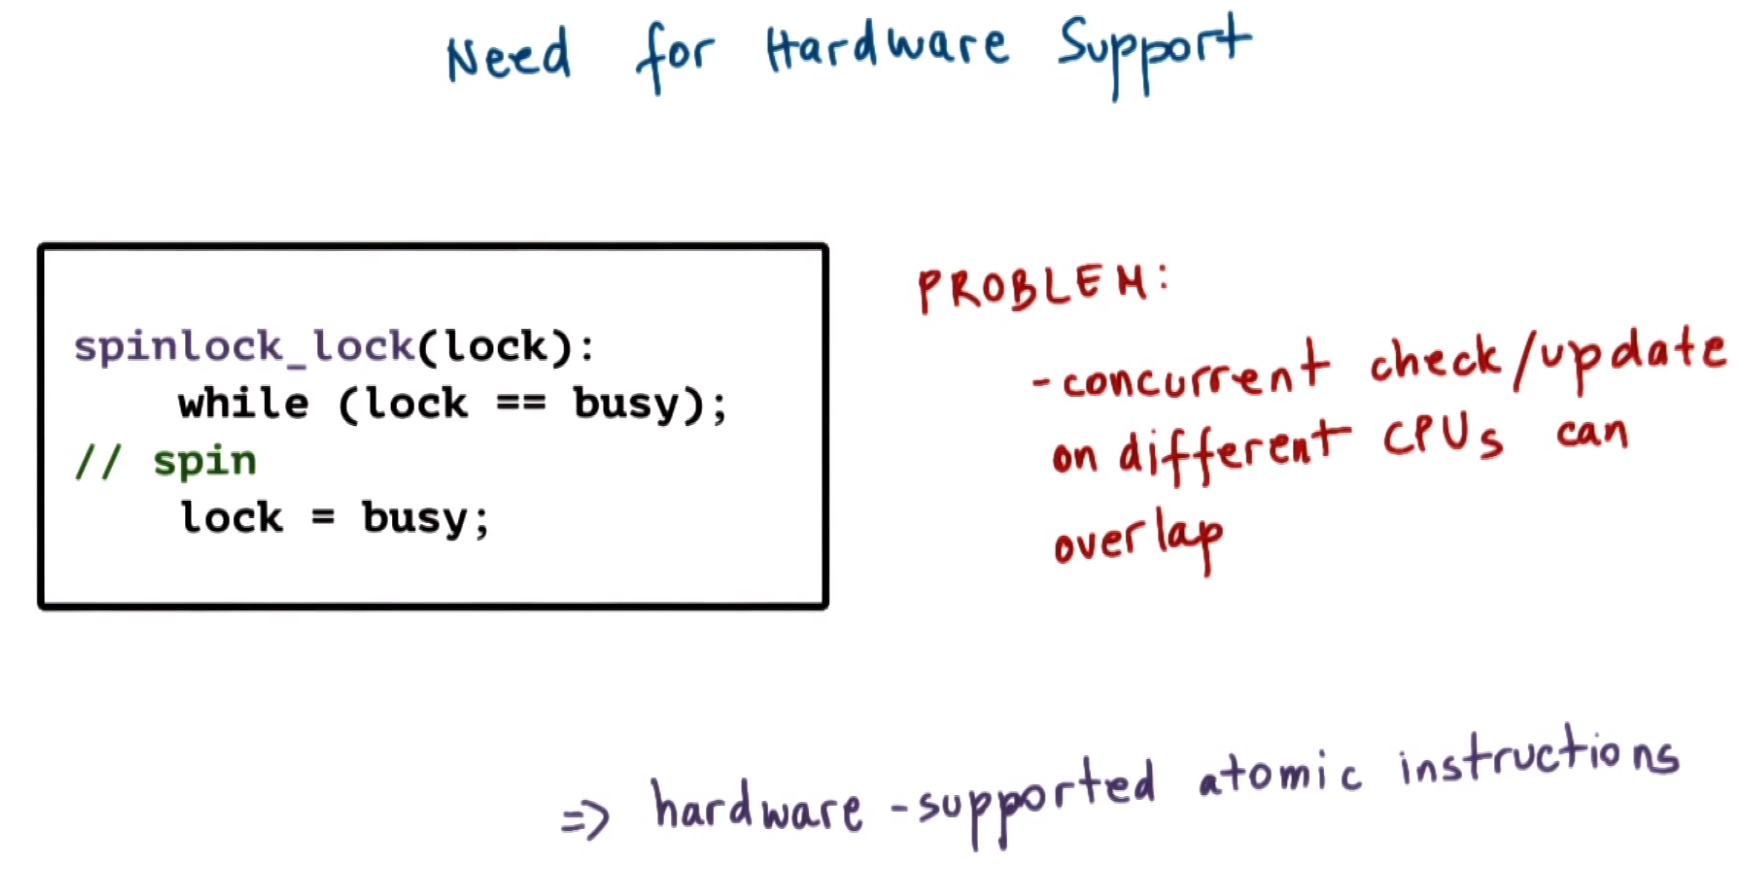 Need for Hardware Support
spinlock_lock(lock):
while (lock == busy);
// spin
lock = busy;
PROBLEM:
- concurrent check/update
on different CPUs can
overlap
=> hardware-supported atomic instructions